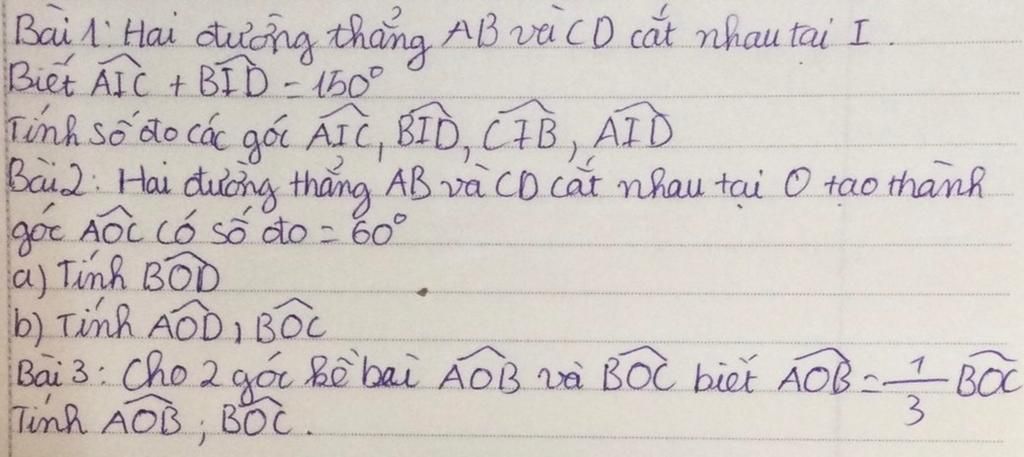 Bài 1: Hai đường thẳng AB và CD cắt nhau tại I.
Biết AIC + BID = 150°
Tính số đo các góc AIC, BID, CIB, AID
Bài 2: Hai đường thẳng AB và CD cắt nhau tại O tạo thành
góc AOC có số đo = 60°
a) Tính BOD
b) Tính AOD, BOC
Bài 3: Cho 2 góc kề bai AOB và BOC biết AOB = 1/3 BOC
Tính AOB; BOC.